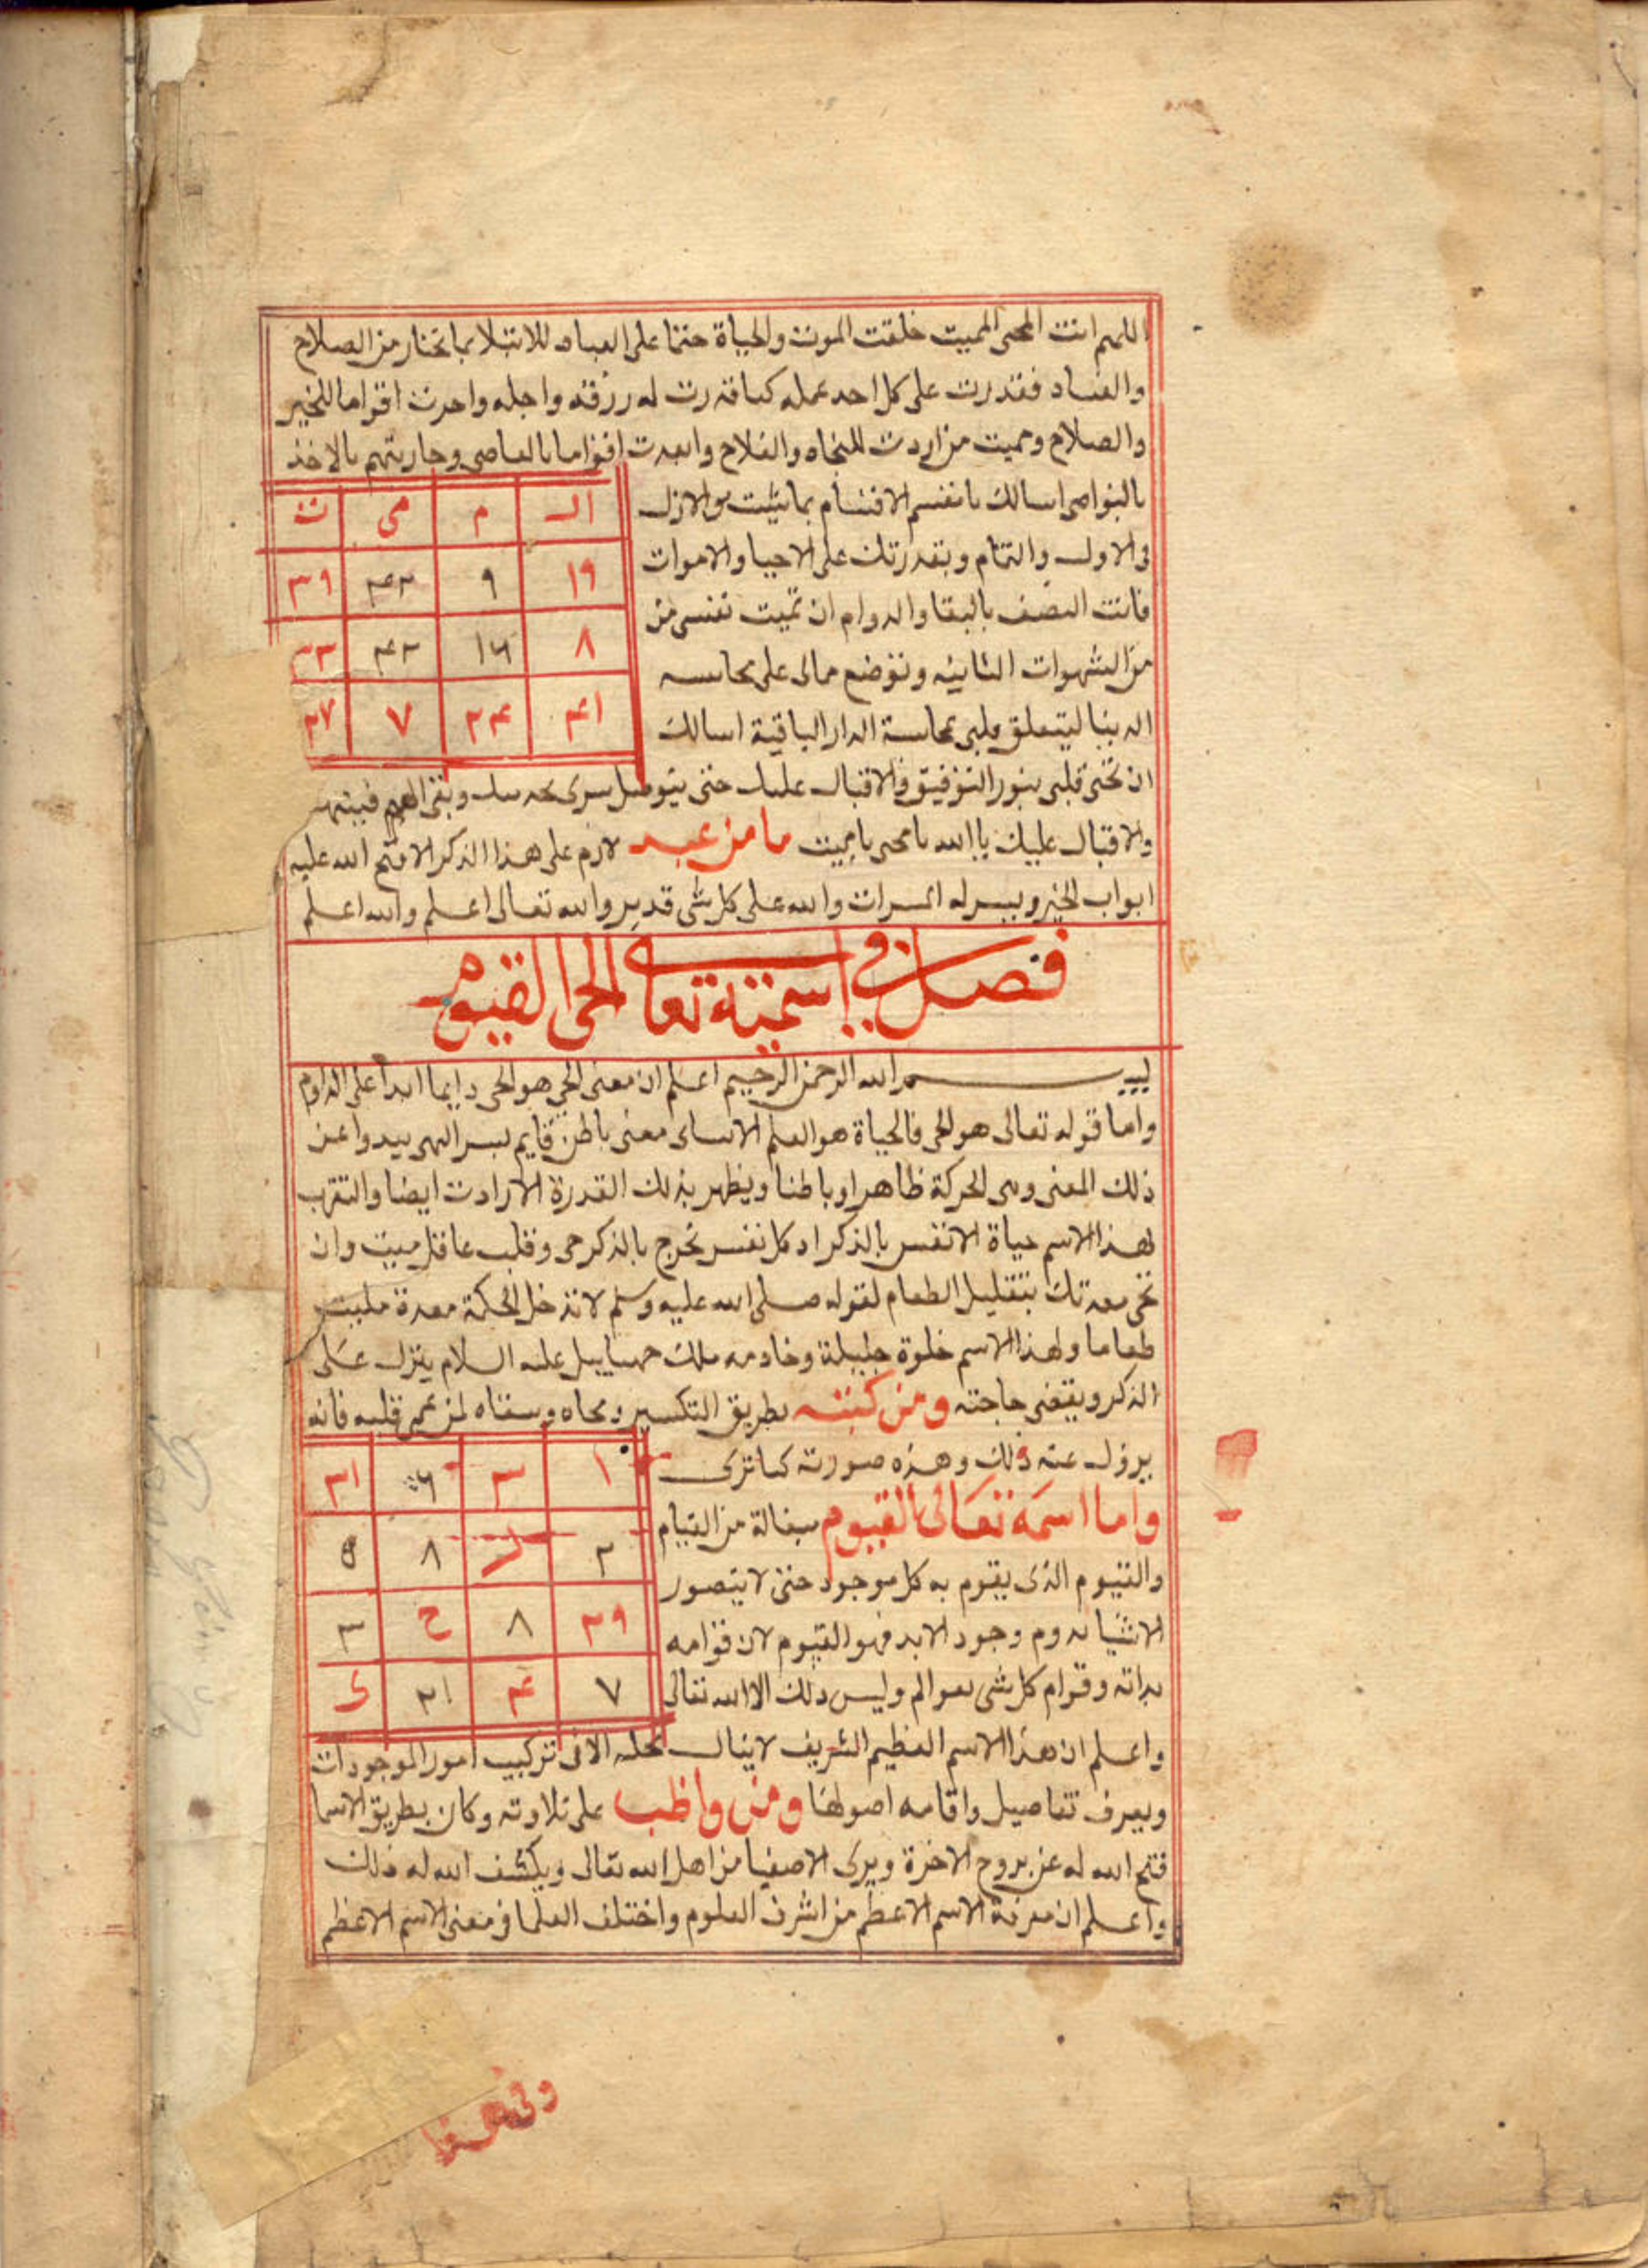 اللهم انت المحى المميت خلقت الموت والحياة حتما على العباد للابتلا بما تختار من الصلاح
والفساد فقدرت على كل احد عمله كما قدرت له رزقه واجله واحرت اقواما للخير
والصلاح وحميت من اردت للنجاه والفلاح وابعدت اقواما بالمعاصى وحاربتهم بالاخذ
بالنواصى اسالك بانفسم الاقسام بما الازل
فى الاول والتمام وبقدرتك على الاحيا والاموات
فانت المصف بالبقا والدوام ان تميت نفسى من
من الشهوات الثانيه وتوضع مالى على محاسبه
الدينا ليتعلق قلبى بمحاسبة الدار الباقية اسالك
ال م مى ت
١٩ ٩ ٤٢ ٣٩
٨ ١٦ ٤٣
٤١ ٢٤ ٧ ٣٧
ان تحى قلبى بنور التوفيق والاقبال عليك حتى يتوصل سرى
والاقبال عليك يا الله يا محى يا مميت ما من عبد لازم على هذا الذكر الا فتح الله عليه
ابواب الخير ويسر له المسرات والله على كل شى قدير والله تعالى اعلم والله اعلم
فصل فى اسمته تعالى الحى القيوم
بسم الله الرحمن الرحيم اعلم ان معنى الحي هو الحى دايما ابدا على الدوام
واما قوله تعالى هو الحى فالحياة هو العلم الانسانى معنى باطن قايم بسر الهى يبدوا عن
ذلك المعنى وهى الحركة ظاهرا وباطنا ويظهر بذلك القدرة الارادت ايضا والتقرب
لهذا الاسم حياة الانفس بالذكر اد كل نفس تخرج بالذكر حى وقلب غافل ميت وان
تحى معدتك بتقليل الطعام لقوله صلى الله عليه وسلم لا تدخل الحكمة معدة مليت
طعاما ولهذا الاسم خلوة جليلة وخادمه ملك عليه السلام ينزل على
الذكر ويقضى حاجته ومن كتبه بطريق التكسير ومحاه وسقاه لمن عمى قلبه فانه
يزول عنه ذلك وهذه صورته كما ترى
واما اسمه تعالى القيوم مبغالة من القيام
والقيوم الذى يقوم به كل موجود حتى لا يتصور
الاشيا بدوم وجود الابد فهو القيوم لان قوامه
بداته وقوام كل شى بعوالم وليس ذلك الا الله تعالى
١ ٣ ٦ ٣١
٢ ٨ ٥
٢٩ ٨ ح ٣
٧ ٤ ٢١ ى
واعلم ان هذا الاسم العظيم الشريف لاينال الا فى تركيب امور الموجودات
ويعرف تفاصيل واقامه اصولها ومن واظب على تلاوته وكان بطريق الاسما
فتح الله له عن بروح الاخرة ويرى الاصفيا من اهل الله تعالى ويكشف الله له ذلك
واعلم ان معرفة الاسم الاعظم من اشرف العلوم واختلف العلما فى معنى الاسم الاعظم